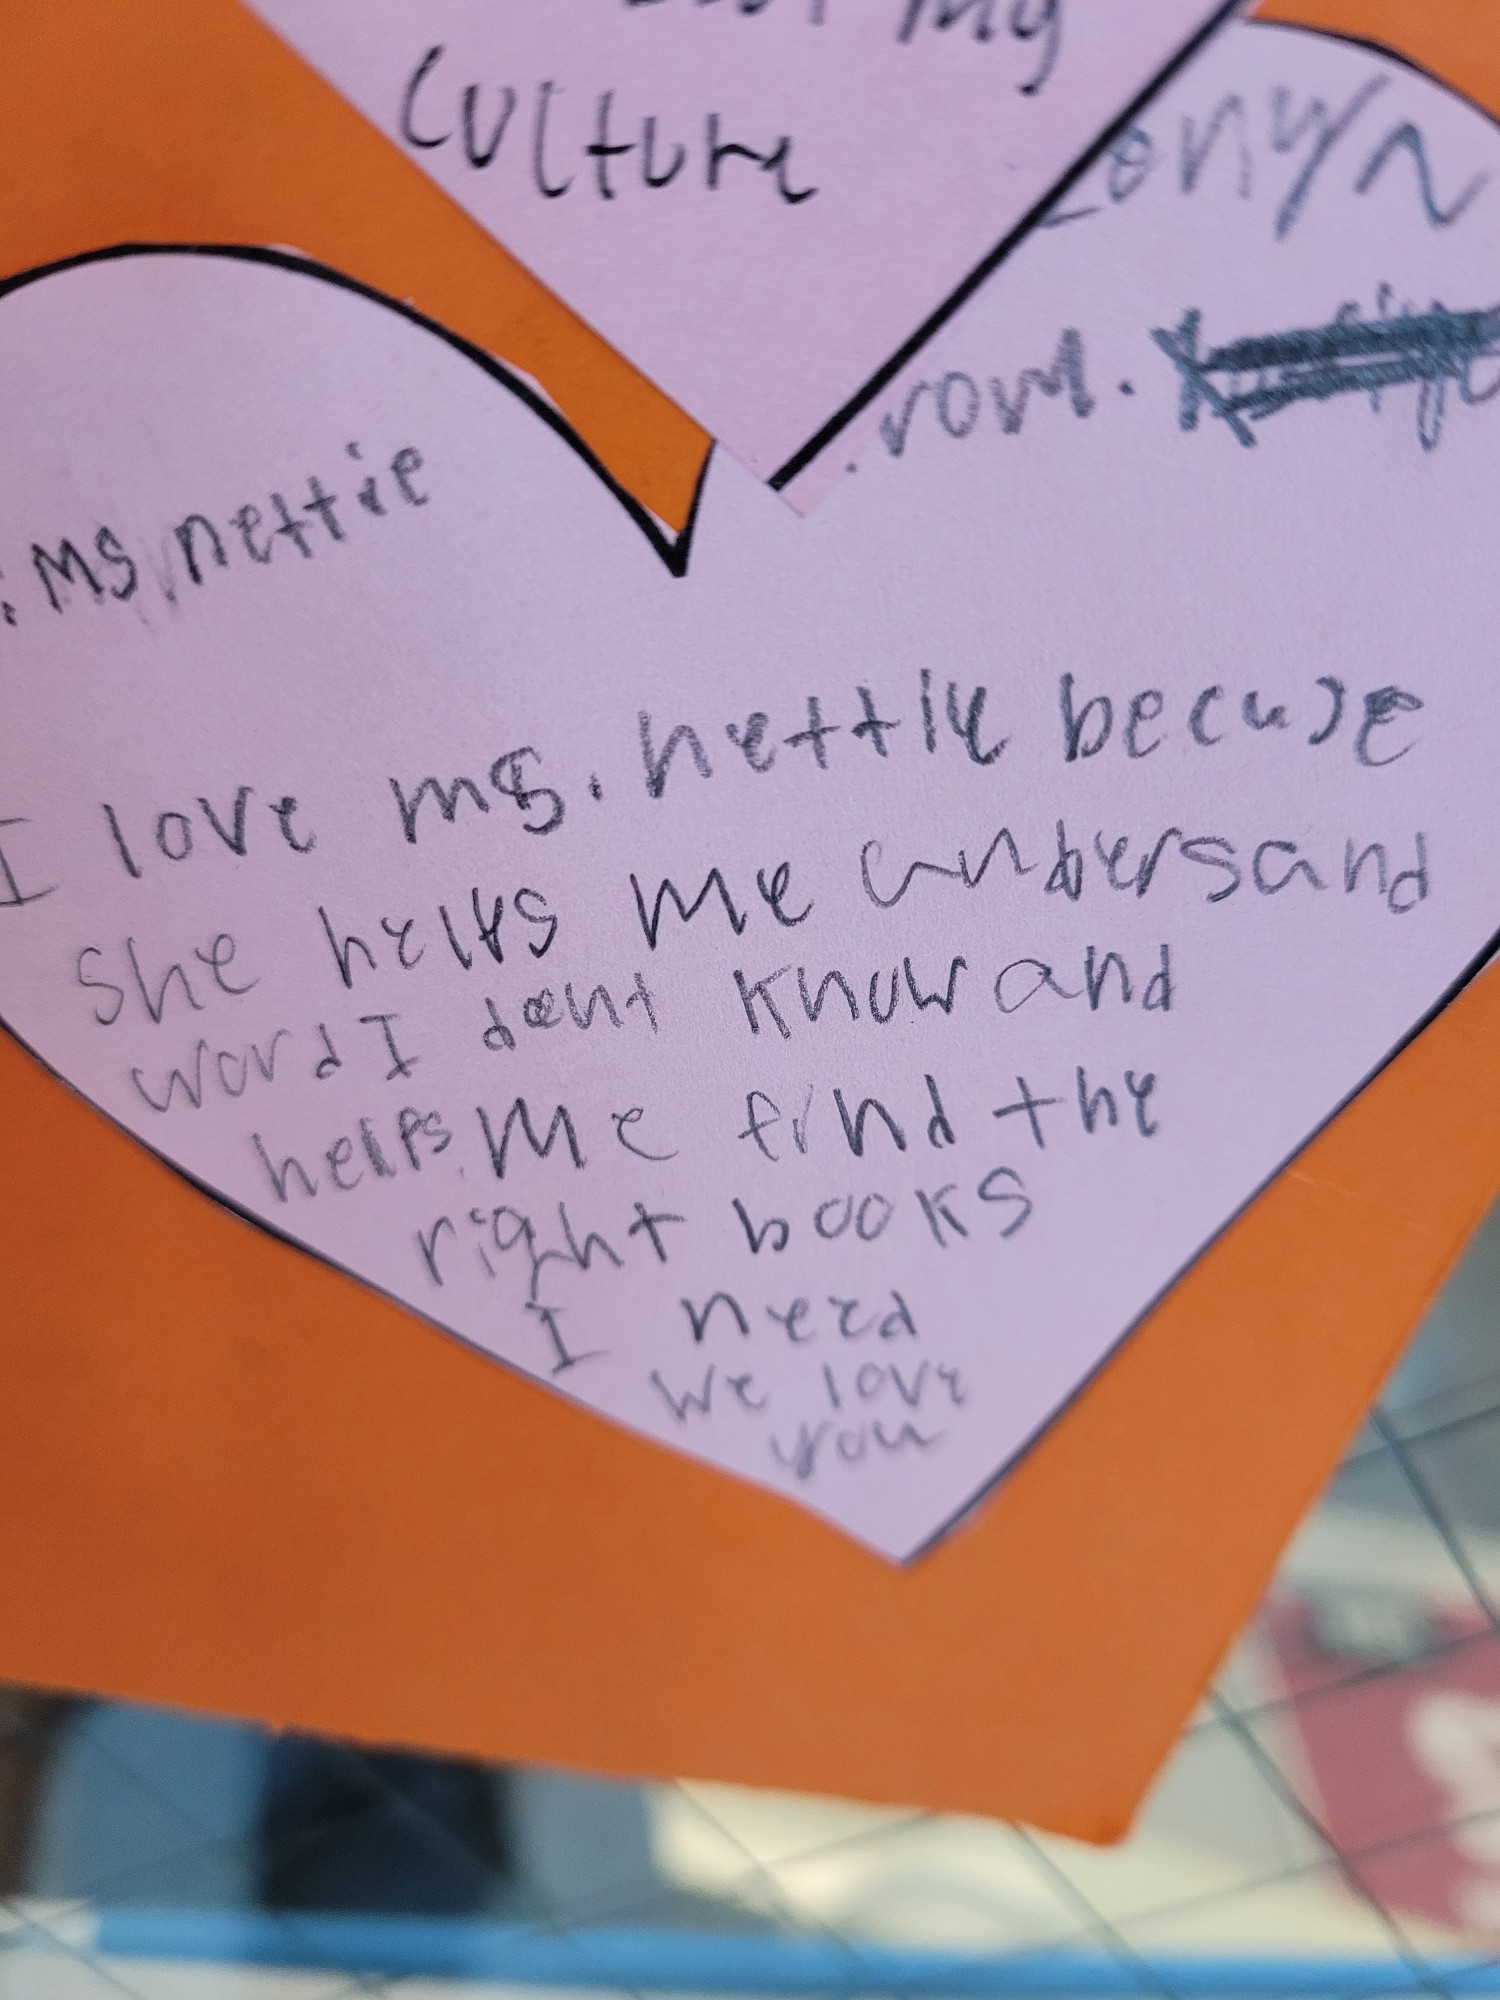 my
culture
: Ms nettie
rom.
I love ms. nettie becuse
she helps me undersand
word I dont know and
helps me find the
right books
I need
we love
you